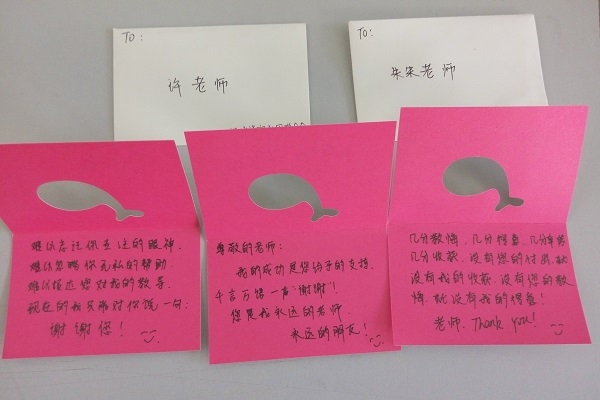 To:
许老师
To:
朱朱老师
难以忘记你的眼神
难以忽略你无私的帮助
难以您对我的教导
现在的我只能对你说一句:
谢谢您!
尊敬的老师:
我的成功是您给予的支持,
千言万语一声"谢谢"!
您是我永远的老师,
永远的朋友!
几分教悔,几分得意,几分
几分收获,没有您的付出,就
没有我的收获,没有您的教
悔,就没有我的得意!
老师,Thank you!